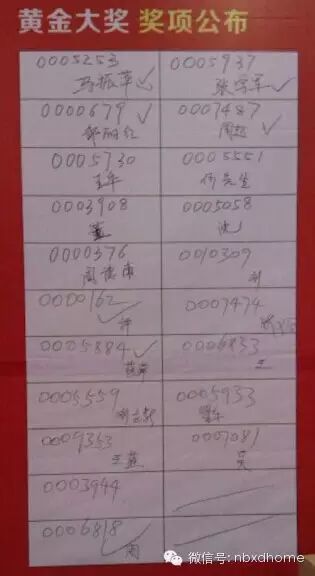 黄金大奖 奖项公布
0005253
0005937
马振革
张守军
0000679
0007487
郭丽红
周超
0005730
0005551
王年
伟先生
0003908
0005058
董
沈
0000376
0010309
周德南
刘
0000162
0007474
许
0005884
0006833
王
0005559
0005933
0009353
0007081
王燕
吴
0003944
0006818
周
微信号: nbxdhome